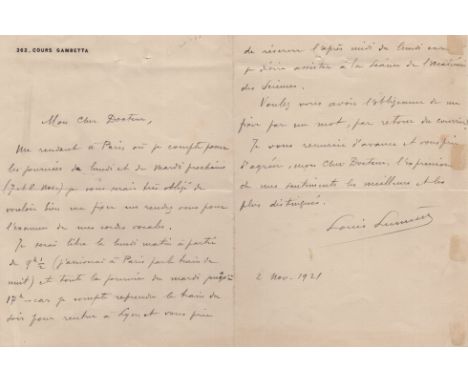 262, COURS GAMBETTA
Mon Cher Docteur,
Me rendant à Paris où je compte passer
les journées de lundi et de mardi prochains
(7 et 8 Nov) je vous serais très obligé de
vouloir bien me fixer un rendez vous pour
l'examen de mes cordes vocales.
Je serai libre le lundi matin à partir
de 9h ½ (j'arriverai à Paris par le train de
nuit) et toute la journée du mardi jusqu'à
17h car je compte reprendre le train du
soir pour rentrer à Lyon et vous prie
de réserver l'après midi du lundi car
je désire assister à la Séance de l'Académie
des Sciences.
Voulez vous avoir l'obligeance de me
fixer par un mot, par retour du courrier
Je vous remercie d'avance et vous prie
d'agréer, mon Cher Docteur, l'expression
de mes sentiments les meilleurs et les
plus distingués.
Louis Lumière
2 Nov. 1921